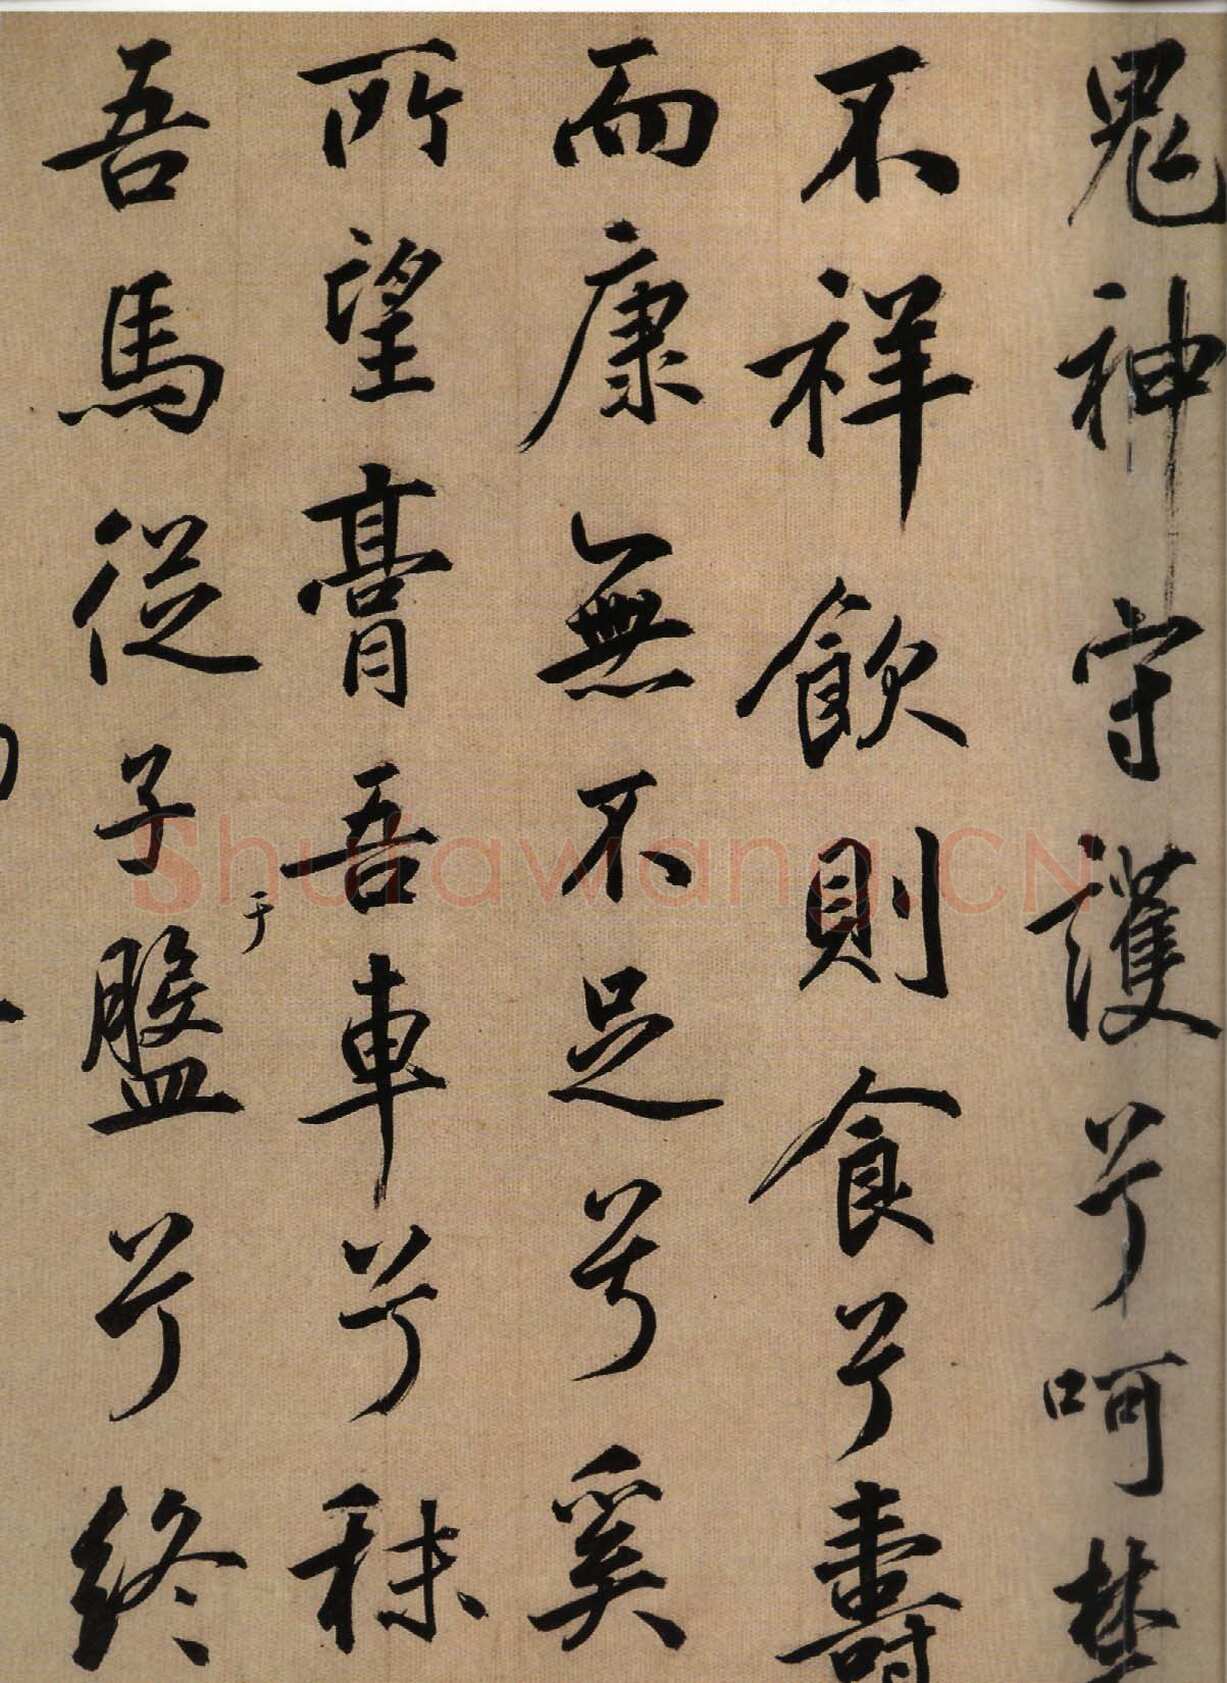 鬼神守護兮呵禁
不祥飲則食兮壽
而康無不足兮奚
所望膏吾車兮秣
吾馬從子于盤兮終
Shufawang.CN